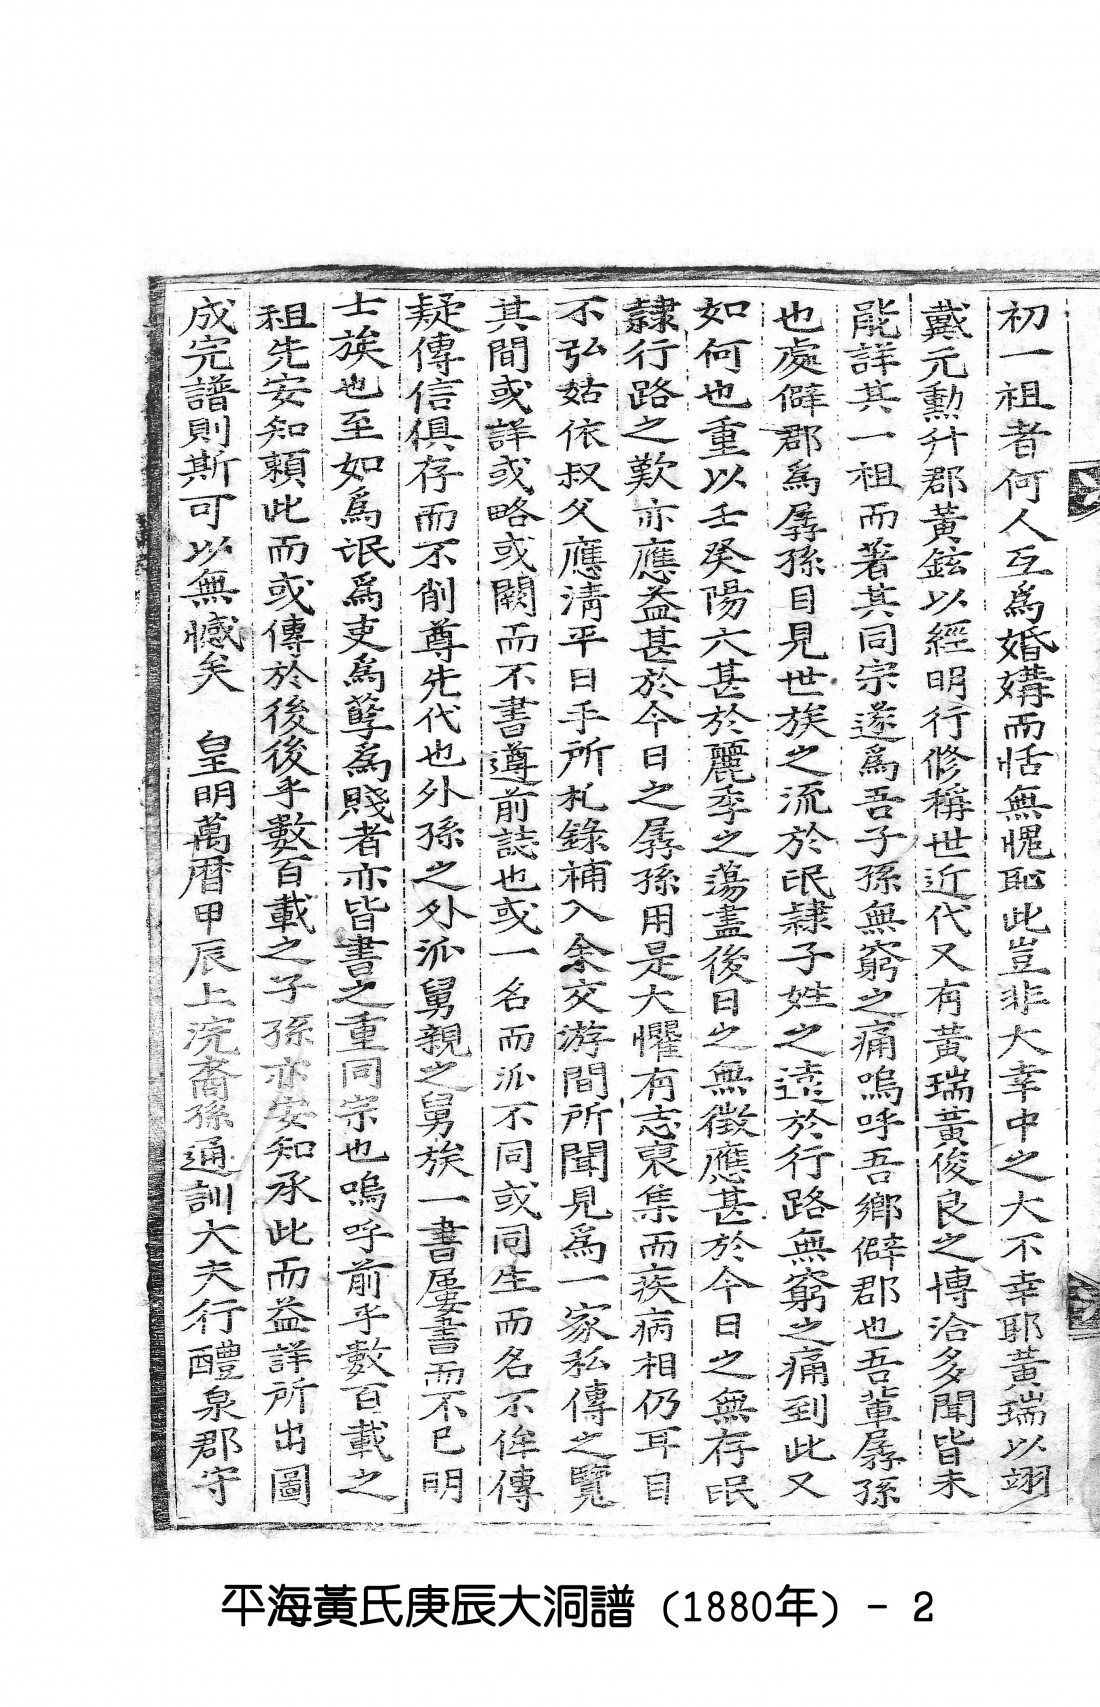 初一祖者何人互爲婚媾而恬無愧恥此豈非大幸中之大不幸耶黃瑞以翊
戴元勳升郡黃鉉以經明行修稱世近代又有黃瑞黃俊良之博洽多聞皆未
能詳其一祖而著其同宗遂爲吾子孫無窮之痛嗚呼吾鄉僻郡也吾輩孱孫
也處僻郡爲孱孫目見世族之流於氓隷子姓之遠於行路無窮之痛到此又
如何也重以壬癸陽六甚於麗季之蕩盡後日之無徵應甚於今日之無存氓
隷行路之歎亦應益甚於今日之孱孫用是大懼有志裒集而疾病相仍耳目
不弘姑依叔父應淸平日手所札錄補入余交游間所聞見爲一家私傳之覽
其間或詳或略或闕而不書遵前誌也或一名而派不同或同生而名不侔傳
疑傳信俱存而不削尊先代也外孫之外派舅親之舅族一書屢書而不已明
士族也至如爲氓爲吏爲孽爲賤者亦皆書之重同宗也嗚呼前乎數百載之
祖先安知賴此而或傳於後後乎數百載之子孫亦安知承此而益詳所出圖
成完譜則斯可以無憾矣　皇明萬曆甲辰上浣裔孫通訓大夫行醴泉郡守
平海黃氏庚辰大洞譜 (1880年) - 2